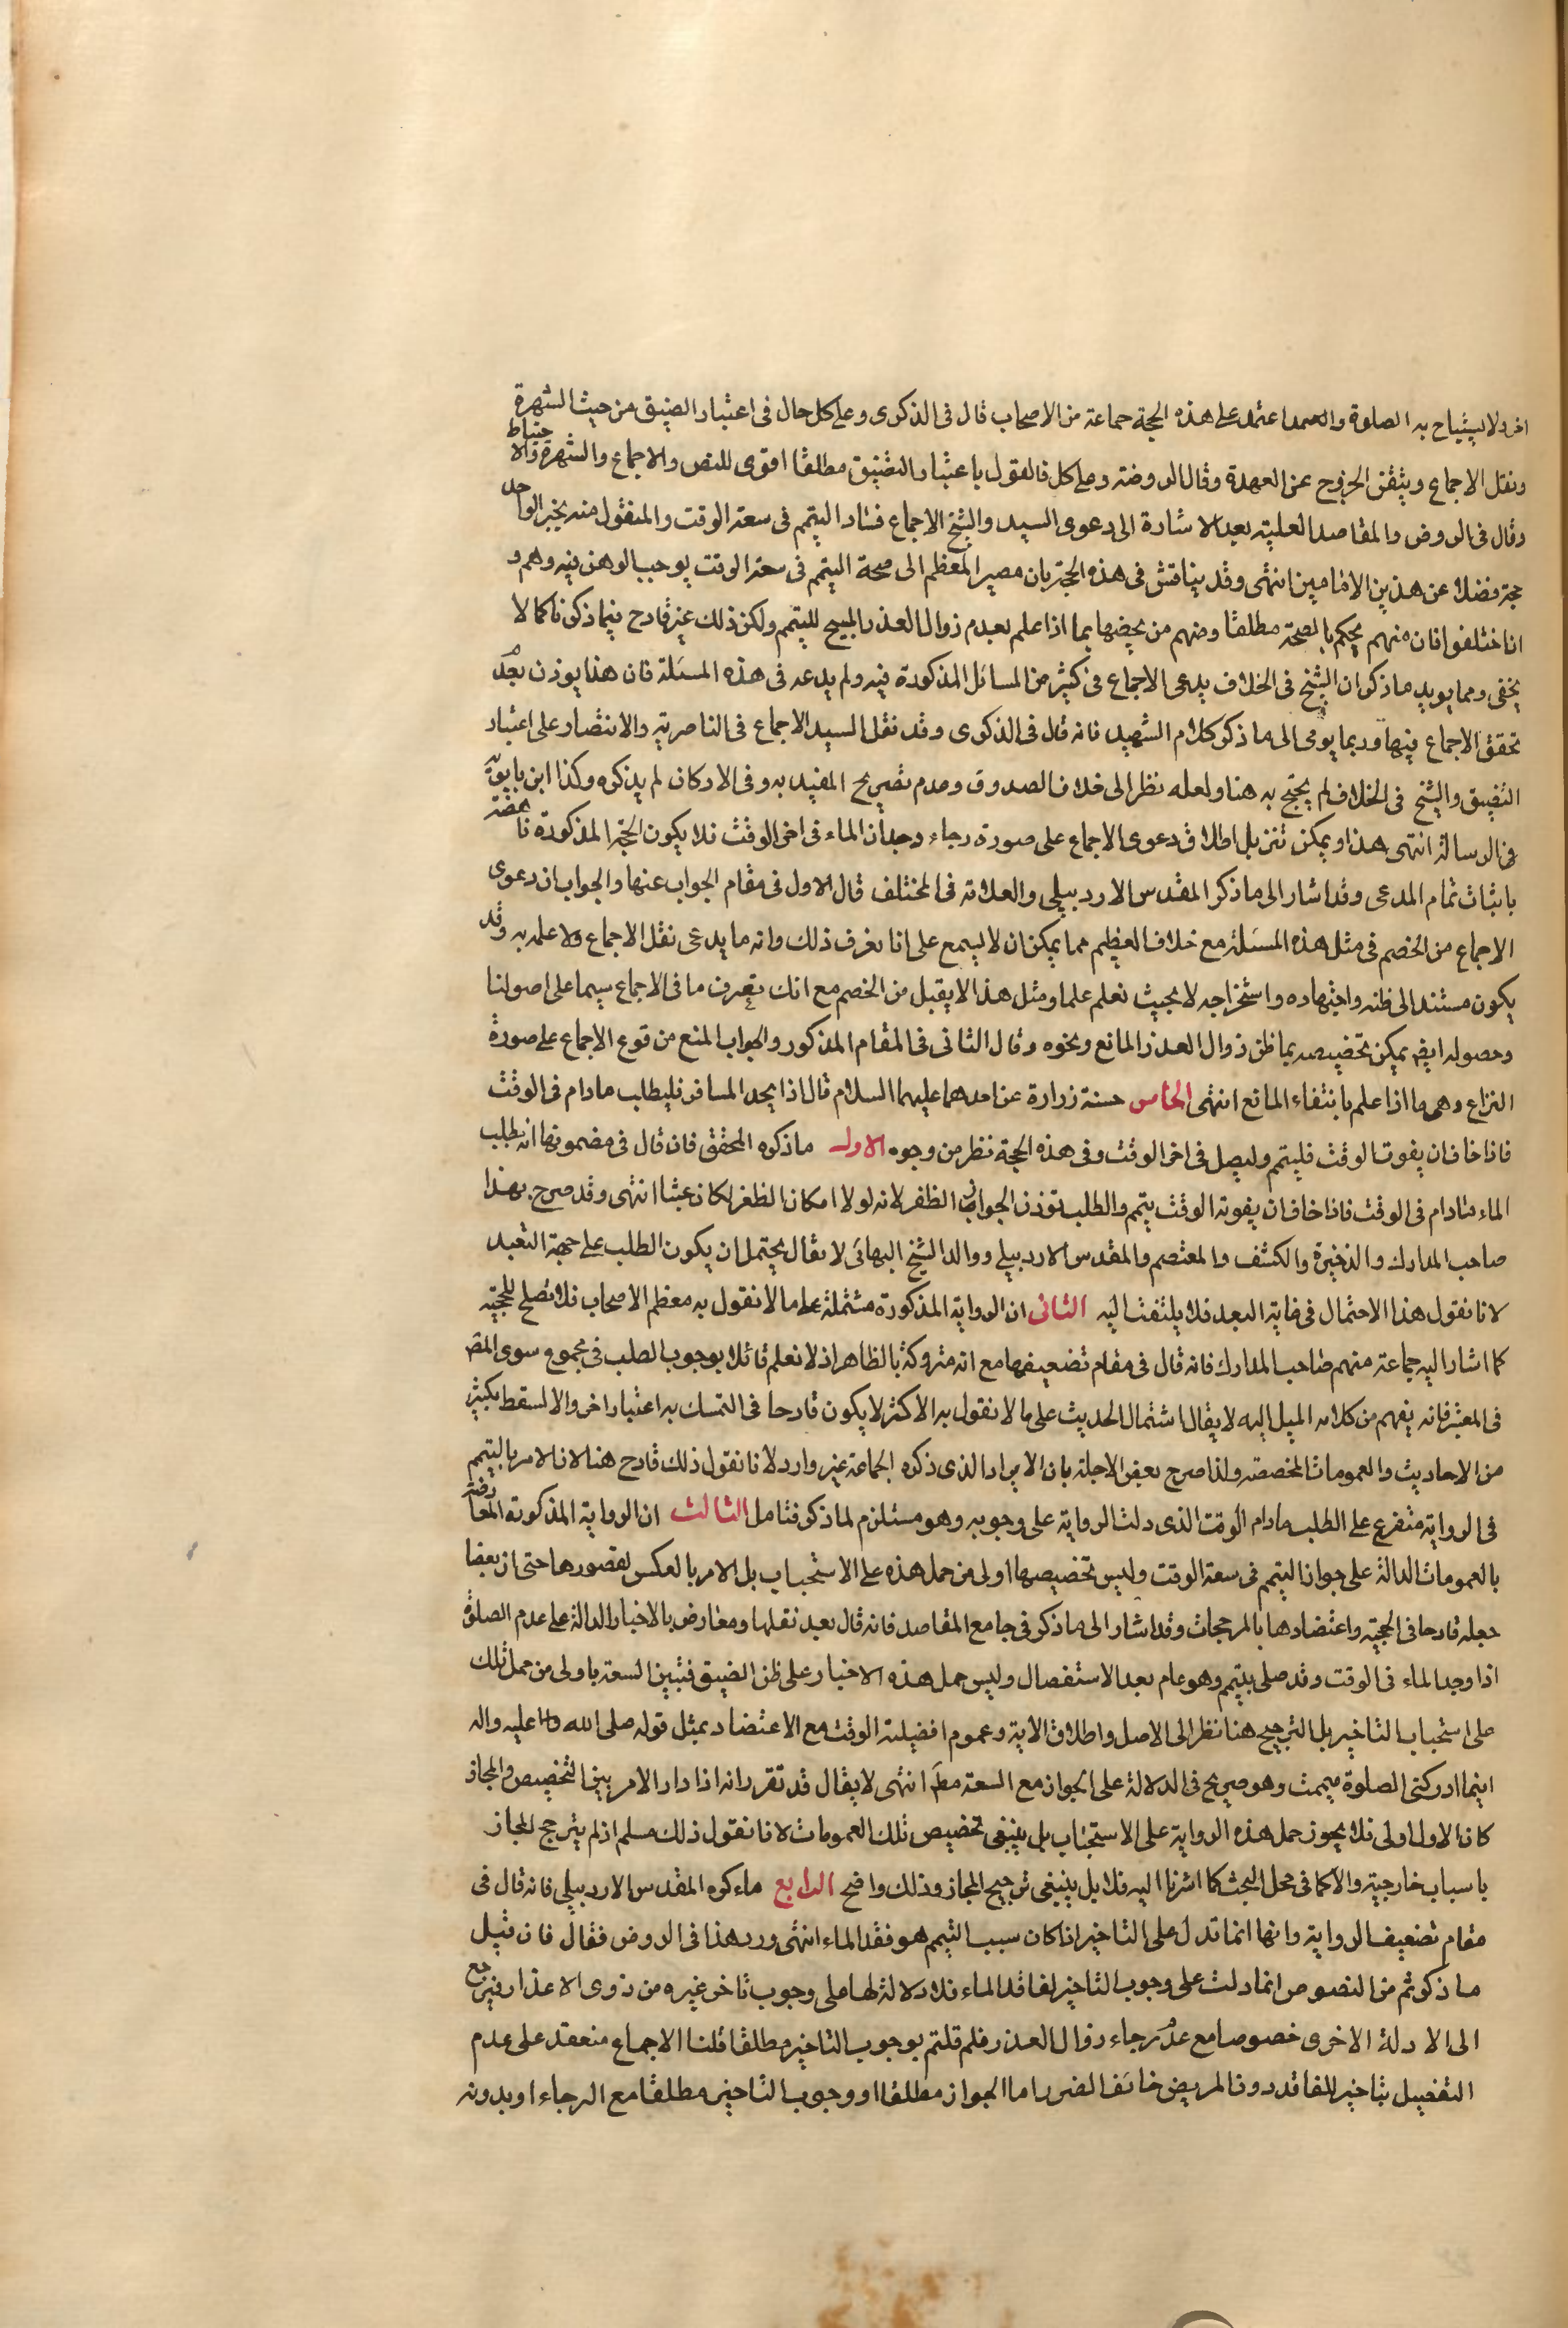 اخر ولا يستباح به الصلوة والعمد اعتمد على هذه الحجة جماعة من الاصحاب قال فى الذكرى وعلى كل حال فى اعتبار الضيق من حيث الشهرة
ونقل الاجماع ويتيقن الخروج عن العهدة وقال الروضة وعلى كل فالقول باعتبار التضيق مطلقا اقوى للنص والاجماع والشهرة والاحتياط
وقال فى الروض والمقاصد العلية بعد الاشارة الى دعوى السيد والشيخ الاجماع فساد التيمم فى سعة الوقت والمنقول منه بخبر الواحد
حجة فضلا عن هذين الامامين انتهى وقد يناقش فى هذه الحجة بان مصير المعظم الى صحة التيمم فى سعة الوقت يوجب الوهن فيه وهم و
ان اختلفوا فان منهم يحكم بالصحة مطلقا ومنهم من يخصها بما اذا علم بعدم زوال العذر المبيح للتيمم ولكن ذلك غير قادح فيما ذكرنا كما لا
يخفى ومما يويد ما ذكر ان الشيخ فى الخلاف يدعى الاجماع فى كثير من المسائل المذكورة فيه ولم يدعه فى هذه المسئلة فان هذا يوذن بعدم
تحقق الاجماع فيها وربما يومى الى ما ذكر كلام الشهيد فانه قال فى الذكرى وقد نقل السيد الاجماع فى الناصرية والانتصار على اعتبار
التضيق والشيخ فى الخلاف لم يحتج به هنا ولعله نظر الى خلاف الصدوق وعدم تصريح المفيد به وفى الاركان لم يذكره وكذا ابن بابويه
فى الرسالة انتهى هذا ويمكن تنزيل اطلاق دعوى الاجماع على صورة رجاء وجدان الماء فى اخر الوقت فلا يكون الحجة المذكورة ناهضة
باثبات تمام المدعى وقد اشار الى ما ذكر المقدس الاردبيلى والعلامة فى المختلف قال الاول فى مقام الجواب عنها والجواب ان دعوى
الاجماع من الخصم فى مثل هذه المسئلة مع خلاف العظيم مما يمكن ان لا يسمع على انا نعرف ذلك وانه ما يدعى نقل الاجماع ولا علمه به وقد
يكون مستندا الى ظنه واجتهاده واستخراجه لا بحيث نعلم علما ومثل هذا لا يقبل من الخصم مع انك تعرف ما فى الاجماع سيما على اصولنا
وحصوله ايضا يمكن تخصيصه بما ظن زوال العذر المانع ونحوه وقال الثانى فى المقام المذكور والجواب المنع من قوع الاجماع على صورة
النزاع وهى ما اذا علم بانتفاء المانع انتهى الخامس حسنة زرارة عن احدهما عليهما السلام قال اذا يجد المسافر فليطلب مادام فى الوقت
فاذا خاف ان يفوت الوقت فليتيمم وليصل فى اخر الوقت وفى هذه الحجة نظر من وجوه الاول ما ذكره المحقق فان قال فى مضمونها انه يطلب
الماء مادام فى الوقت فاذا خاف ان يفوته الوقت يتيمم والطلب توذن الظفر لانه لولا امكان الظفر لكان عبثا انتهى وقد صرح بهذا
صاحب المدارك والذخيرة والكشف والمعتصم والمقدس الاردبيلى ووالد الشيخ البهائى لا يقال يحتمل ان يكون الطلب على جهة التعبد
لانا نقول هذا الاحتمال فى غاية البعد فلا يلتفت اليه الثانى ان الرواية المذكورة مشتملة على ما لا نقول به معظم الاصحاب فلا تصلح للحجية
كما اشار اليه جماعة منهم صاحب المدارك فانه قال فى مقام تضعيفها مع انه متروكة بالظاهر اذ لا نعلم قائلا بوجوب الطلب فى مجموع سوى المض
فى المعتبر فانه يفهم من كلامه الميل اليه لا يقال اشتمال الحديث على ما لا نقول به الاكثر لا يكون قادحا فى التمسك به اعتبار اخر والا لسقط بكثير
من الاحاديث والعمومات المخصصة ولذا صرح بعض الاجلة بان الايراد الذى ذكره الجماعة غير وارد لانا نقول ذلك قادح هنا لان الامر بالتيمم
فى الرواية متفرع على الطلب مادام الوقت الذى دلت الرواية على وجوبه وهو مستلزم لما ذكر فتامل الثالث ان الرواية المذكورة المعارضة
بالعمومات الدالة على جواز التيمم فى سعة الوقت وليس تخصيصها اولى من حمل هذه على الاستحباب بل الامر بالعكس لقصورها حتى ان بعضا
جعله قادحا فى الحجية واعتضادها بالمرجحات وقد اشار الى ما ذكر فى جامع المقاصد فانه قال بعد نقلها ومعارض بالاخبار الدالة على عدم الصلوة
اذا وجد الماء فى الوقت وقد صلى بتيمم وهو عام بعد الاستفصال وليس حمل هذه الاخبار على ظن الضيق فتبين السعة باولى من حمل تلك
على استحباب التاخير بل الترجيح هنا نظر الى الاصل واطلاق الاية وعموم افضيلة الوقت مع الاعتضاد بمثل قوله صلى الله عليه واله
اينما ادركتنى الصلوة تيممت وهو صريح فى الدلالة على الجواز مع السعة مطلقا انتهى لا يقال قد تقرر انه اذا دار الامر بين التخصيص والمجاز
كان الاول اولى فلا يجوز حمل هذه الرواية على الاستحباب بل ينبغى تخصيص تلك العمومات لانا نقول ذلك مسلم اذ لم يترجح المجاز
باسباب خارجية والا كما فى محل البحث كما اشرنا اليه فلا بل ينبغى ترجيح المجاز وذلك واضح الرابع ما ذكره المقدس الاردبيلى فانه قال فى
مقام تضعيف الرواية وانها انما تدل على التاخير اذا كان سبب التيمم هو فقد الماء انتهى ورد هذا فى الروض فقال فان قيل
ما ذكرتم من النصوص انما دلت على وجوب التاخير لفاقد الماء فلا دلالة لها على وجوب تاخر غيره من ذوى الاعذار فيرجع
الى الادلة الاخرى خصوصا مع عدم رجاء زوال العذر فلم قلتم بوجوب التاخير مطلقا قلنا الاجماع منعقد على عدم
التفصيل بتاخير الفاقد دون المريض خائف الضرر اما الجواز مطلقا او وجوب التاخير مطلقا مع الرجاء او بدونه